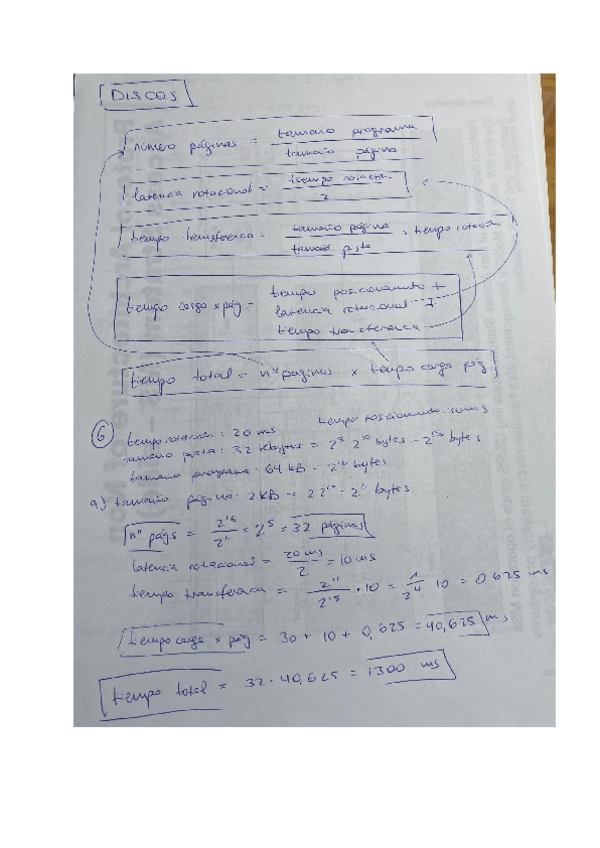 DISCOS
número páginas = tamaño programa / tamaño página
latencia rotacional = tiempo rotación / 2
tiempo transferencia = tamaño página / tamaño pista · tiempo rotación
tiempo carga x pág = tiempo posicionamiento +
latencia rotacional +
tiempo transferencia
tiempo total = nº paginas x tiempo carga pág
6
tiempo rotacion: 20 ms
tiempo posicionamiento:
tamaño pista: 32 Kbytes = 2⁵ 2¹⁰ bytes = 2¹⁵ bytes
tamaño programa: 64 kB = 2¹⁶ bytes
a) tamaño página: 2 kB = 2 2¹⁰ = 2¹¹ bytes
nº págs = 2¹⁶ / 2¹¹ = 2⁵ = 32 páginas
latencia rotacional = 20 ms / 2 = 10 ms
tiempo transferencia = 2¹¹ / 2¹⁵ · 10 = 1 / 2⁴ 10 = 0,625 ms
tiempo carga x pág = 30 + 10 + 0,625 = 40,625 ms
tiempo total = 32 · 40,625 = 1300 ms